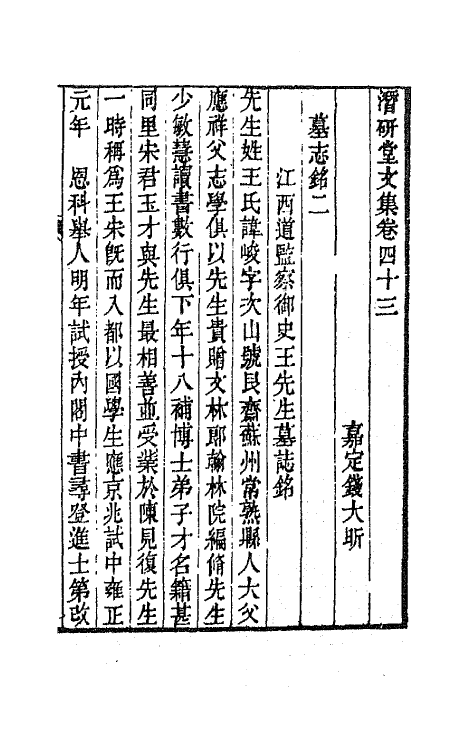 潛研堂文集卷四十三
嘉定錢大昕
墓志銘二
江西道監察御史王先生墓誌銘
先生姓王氏諱峻字次山號艮齋蘇州常熟縣人大父
應祥父志學俱以先生貴贈文林郎翰林院編脩先生
少敏慧讀書數行俱下年十八補博士弟子才名籍甚
同里宋君玉才與先生最相善並受業於陳見復先生
一時稱爲王宋旣而入都以國學生應京兆試中雍正
元年　恩科舉人明年試授內閣中書尋登進士第改